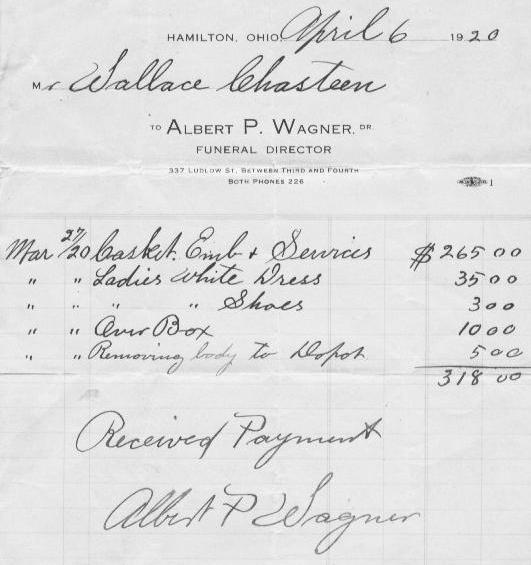 HAMILTON, OHIO, April 6 1920
Mr Wallace Chasteen
TO ALBERT P. WAGNER, DR.
FUNERAL DIRECTOR
337 LUDLOW ST. BETWEEN THIRD AND FOURTH
BOTH PHONES 226
1
Mar 27/20 Casket. Emb + Services $265 00
" " Ladies White Dress 35 00
" " " " Shoes 3 00
" " Over Box 10 00
" " Removing body to Depot 5 00
318 00
Received Payment
Albert P Wagner